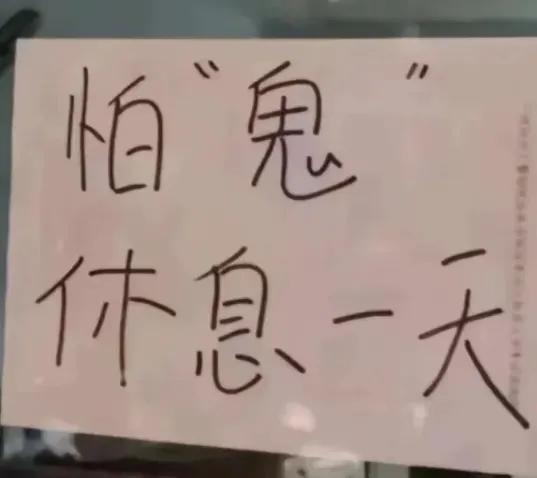 怕"鬼"
休息一天